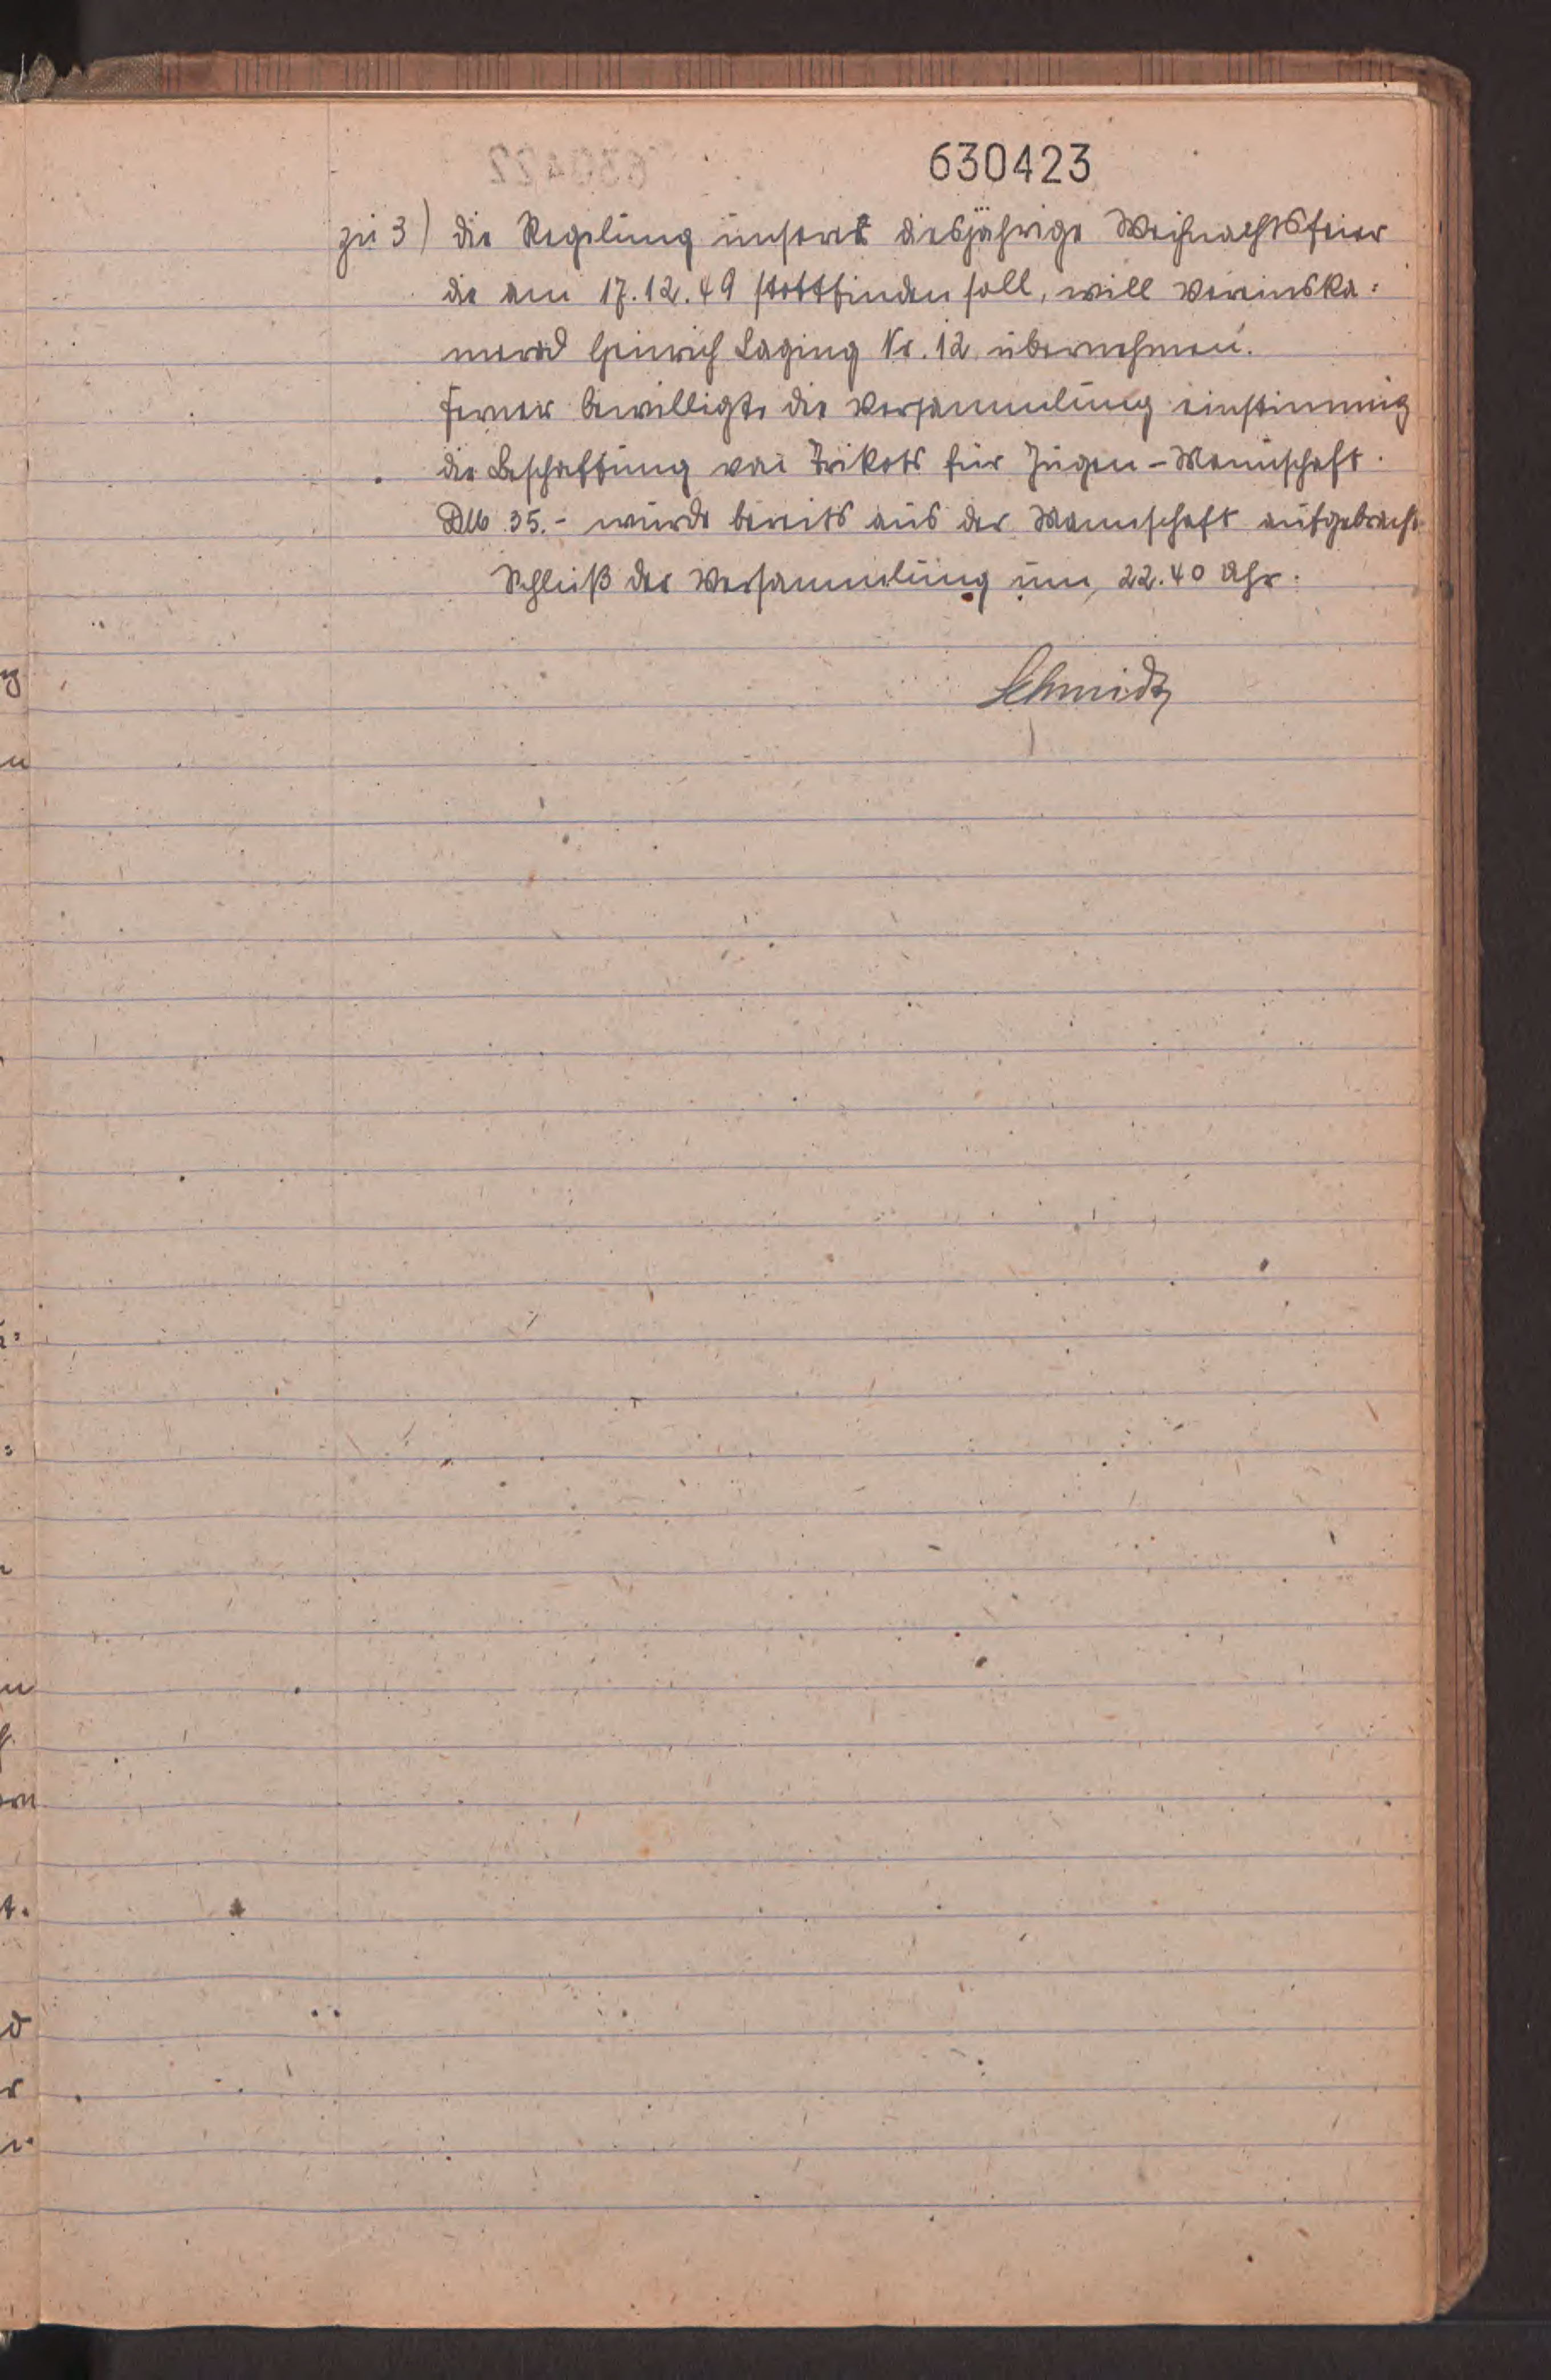 630423
zu 3) die Regelung unserer diesjährige Weihnachtsfeier
die am 17.12.49 stattfinden soll, will Vereinska=
merad Heinrich Laging Nr. 12 übernehmen.
Ferner bewilligte die Versammlung einstimmig
die Beschaffung von Trikots für Jugen-Mannschaft.
DM 35.- wurde bereits aus der Mannschaft aufgebracht
Schluß der Versammlung um 22.40 Uhr.
Schmidt